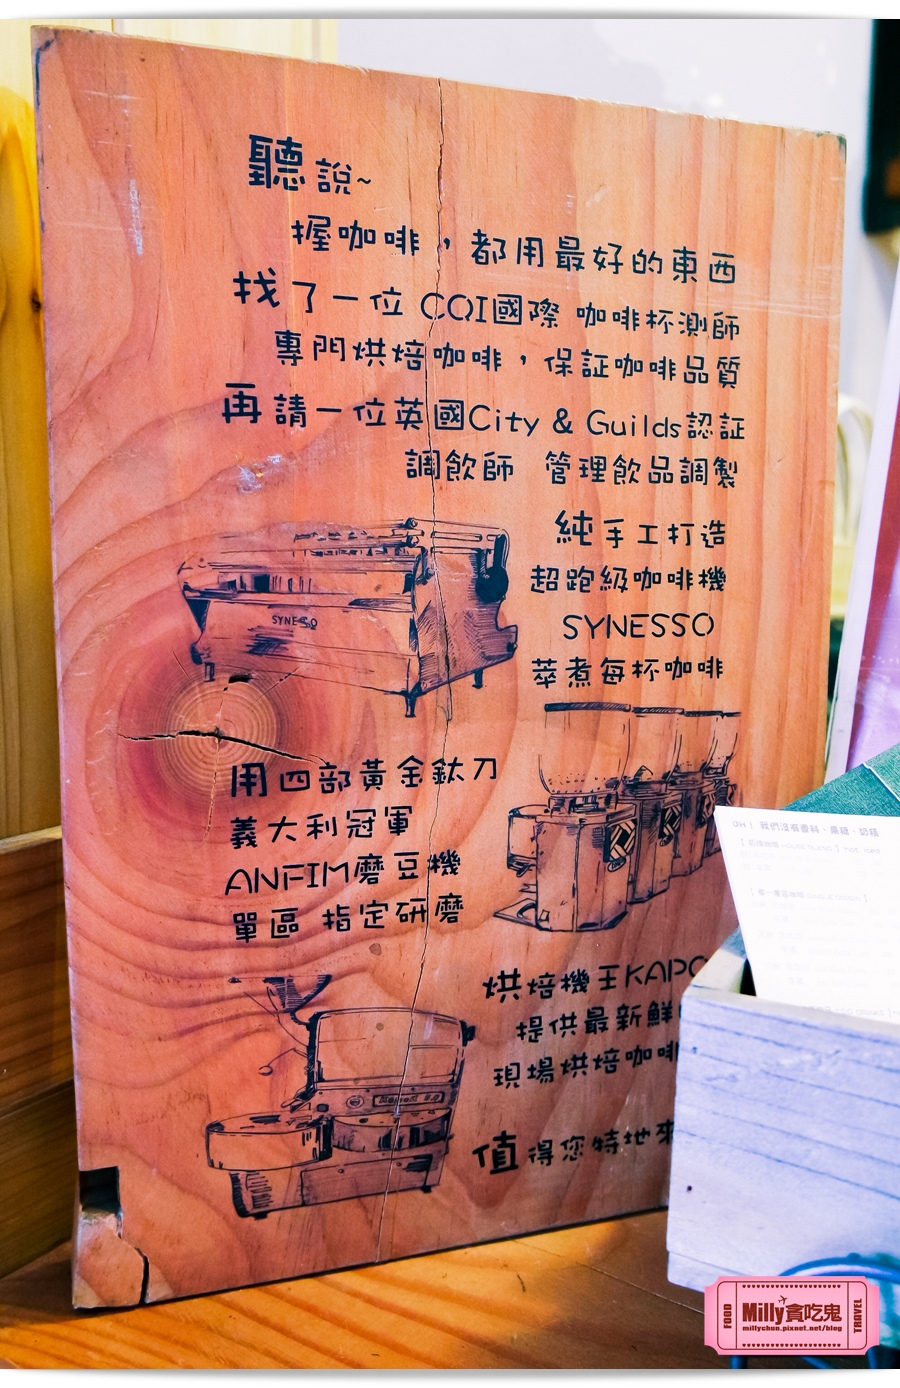 聽說~
握咖啡，都用最好的東西
找了一位 CQI國際 咖啡杯測師
專門烘焙咖啡，保証咖啡品質
再請一位英國City & Guilds認証
調飲師 管理飲品調製
純手工打造
超跑級咖啡機
SYNESSO
萃煮每杯咖啡
SYNESSO
用四部黃金鈦刀
義大利冠軍
ANFIM磨豆機
單區 指定研磨
烘焙機王KAPO
提供最新鮮
現場烘焙咖啡
值得您特地來
OH! 我們沒有香料、果糖、奶精
FOOD
Milly貪吃鬼
millychun.pixnet.net/blog
TRAVEL